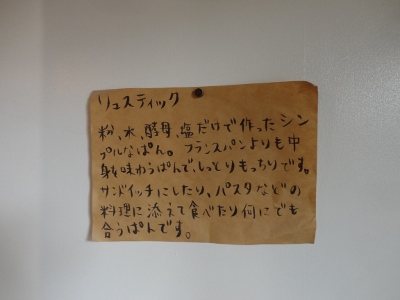 リュスティック
粉、水、酵母、塩だけで作ったシン
プルなぱん。フランスパンよりも中
身を味わうぱんで、しっとりもっちりです。
サンドイッチにしたり、パスタなどの
料理に添えて食べたり何にでも
合うぱんです。